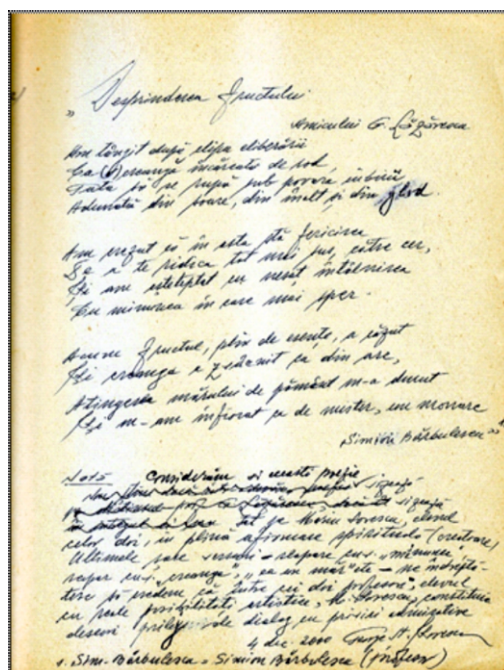 "Desprinderea fructului
Amicului G. Lăzărescu
Am tânjit după clipa eliberării
Ca (o) creangă încărcată de rod
Gata să se rupă sub povara iubirii
Adunată din soare, din înalt și din glod.
Am crezut că în asta stă fericirea
De a te ridica tot mai sus, către cer,
Și am așteptat cu nesaț întâlnirea
Cu minunea în care mai sper.
Acum fructul, plin de esențe, a căzut
Și creanga a zvâcnit ca din arc,
Atingerea mărului de pământ m-a durut
Și m-am înfiorat ca de mister,
Simion Bărbulescu"
Notă Considerăm că această poezie
vizează
pe prof. G. Lăzărescu, vizează
tot pe Marin Sorescu, elevul
celor doi, în plină afirmare spirituală (creatoare)
Ultimele versuri - cu "minunea",
cu "creanga", ca un - ne îndreptă-
țesc să credem că între cei doi profesori, elevul
cu reale posibilități artistice, M. Sorescu, constituia
deseori prilejuri de dialog cu priviri admirative
4 dec. 2000
Sim. Bărbulescu = Simion Bărbulescu